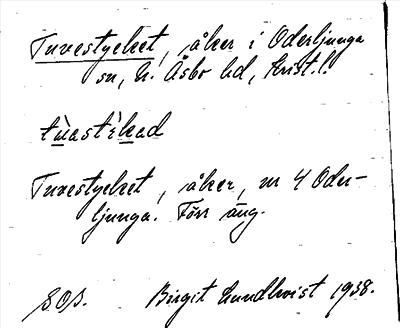 Tuvestycket, åker i Oderljunga
sn, N. Åsbo hd, Krist.l.
Tuvestycket, åker, nr 4 Oder-
ljunga. Förr äng.
Birgit Lundkvist 1938.